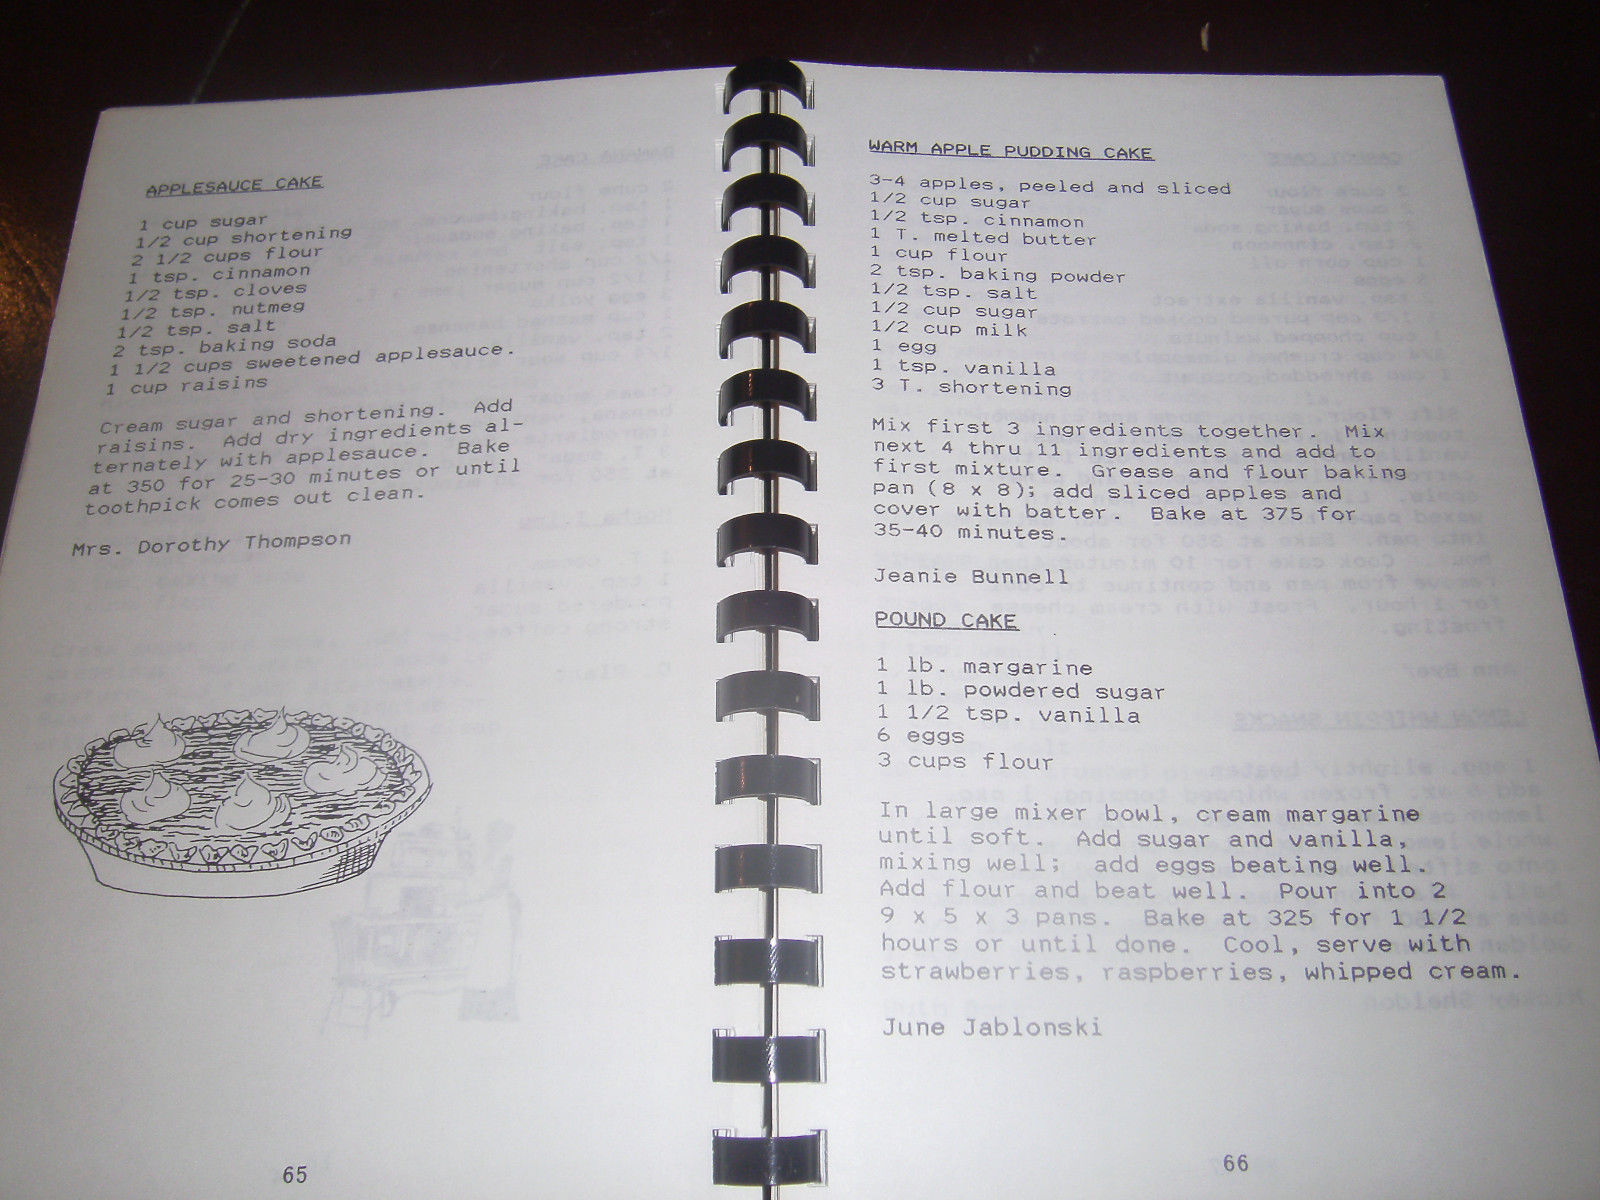 APPLESAUCE CAKE
1 cup sugar
1/2 cup shortening
2 1/2 cups flour
1 tsp. cinnamon
1/2 tsp. cloves
1/2 tsp. nutmeg
1/2 tsp. salt
2 tsp. baking soda
1 1/2 cups sweetened applesauce.
1 cup raisins
Cream sugar and shortening. Add
raisins. Add dry ingredients al-
ternately with applesauce. Bake
at 350 for 25-30 minutes or until
toothpick comes out clean.
Mrs. Dorothy Thompson
65
WARM APPLE PUDDING CAKE
3-4 apples, peeled and sliced
1/2 cup sugar
1/2 tsp. cinnamon
1 T. melted butter
1 cup flour
2 tsp. baking powder
1/2 tsp. salt
1/2 cup sugar
1/2 cup milk
1 egg
1 tsp. vanilla
3 T. shortening
Mix first 3 ingredients together. Mix
next 4 thru 11 ingredients and add to
first mixture. Grease and flour baking
pan (8 x 8); add sliced apples and
cover with batter. Bake at 375 for
35-40 minutes.
Jeanie Bunnell
POUND CAKE
1 lb. margarine
1 lb. powdered sugar
1 1/2 tsp. vanilla
6 eggs
3 cups flour
In large mixer bowl, cream margarine
until soft. Add sugar and vanilla,
mixing well; add eggs beating well.
Add flour and beat well. Pour into 2
9 x 5 x 3 pans. Bake at 325 for 1 1/2
hours or until done. Cool, serve with
strawberries, raspberries, whipped cream.
June Jablonski
66